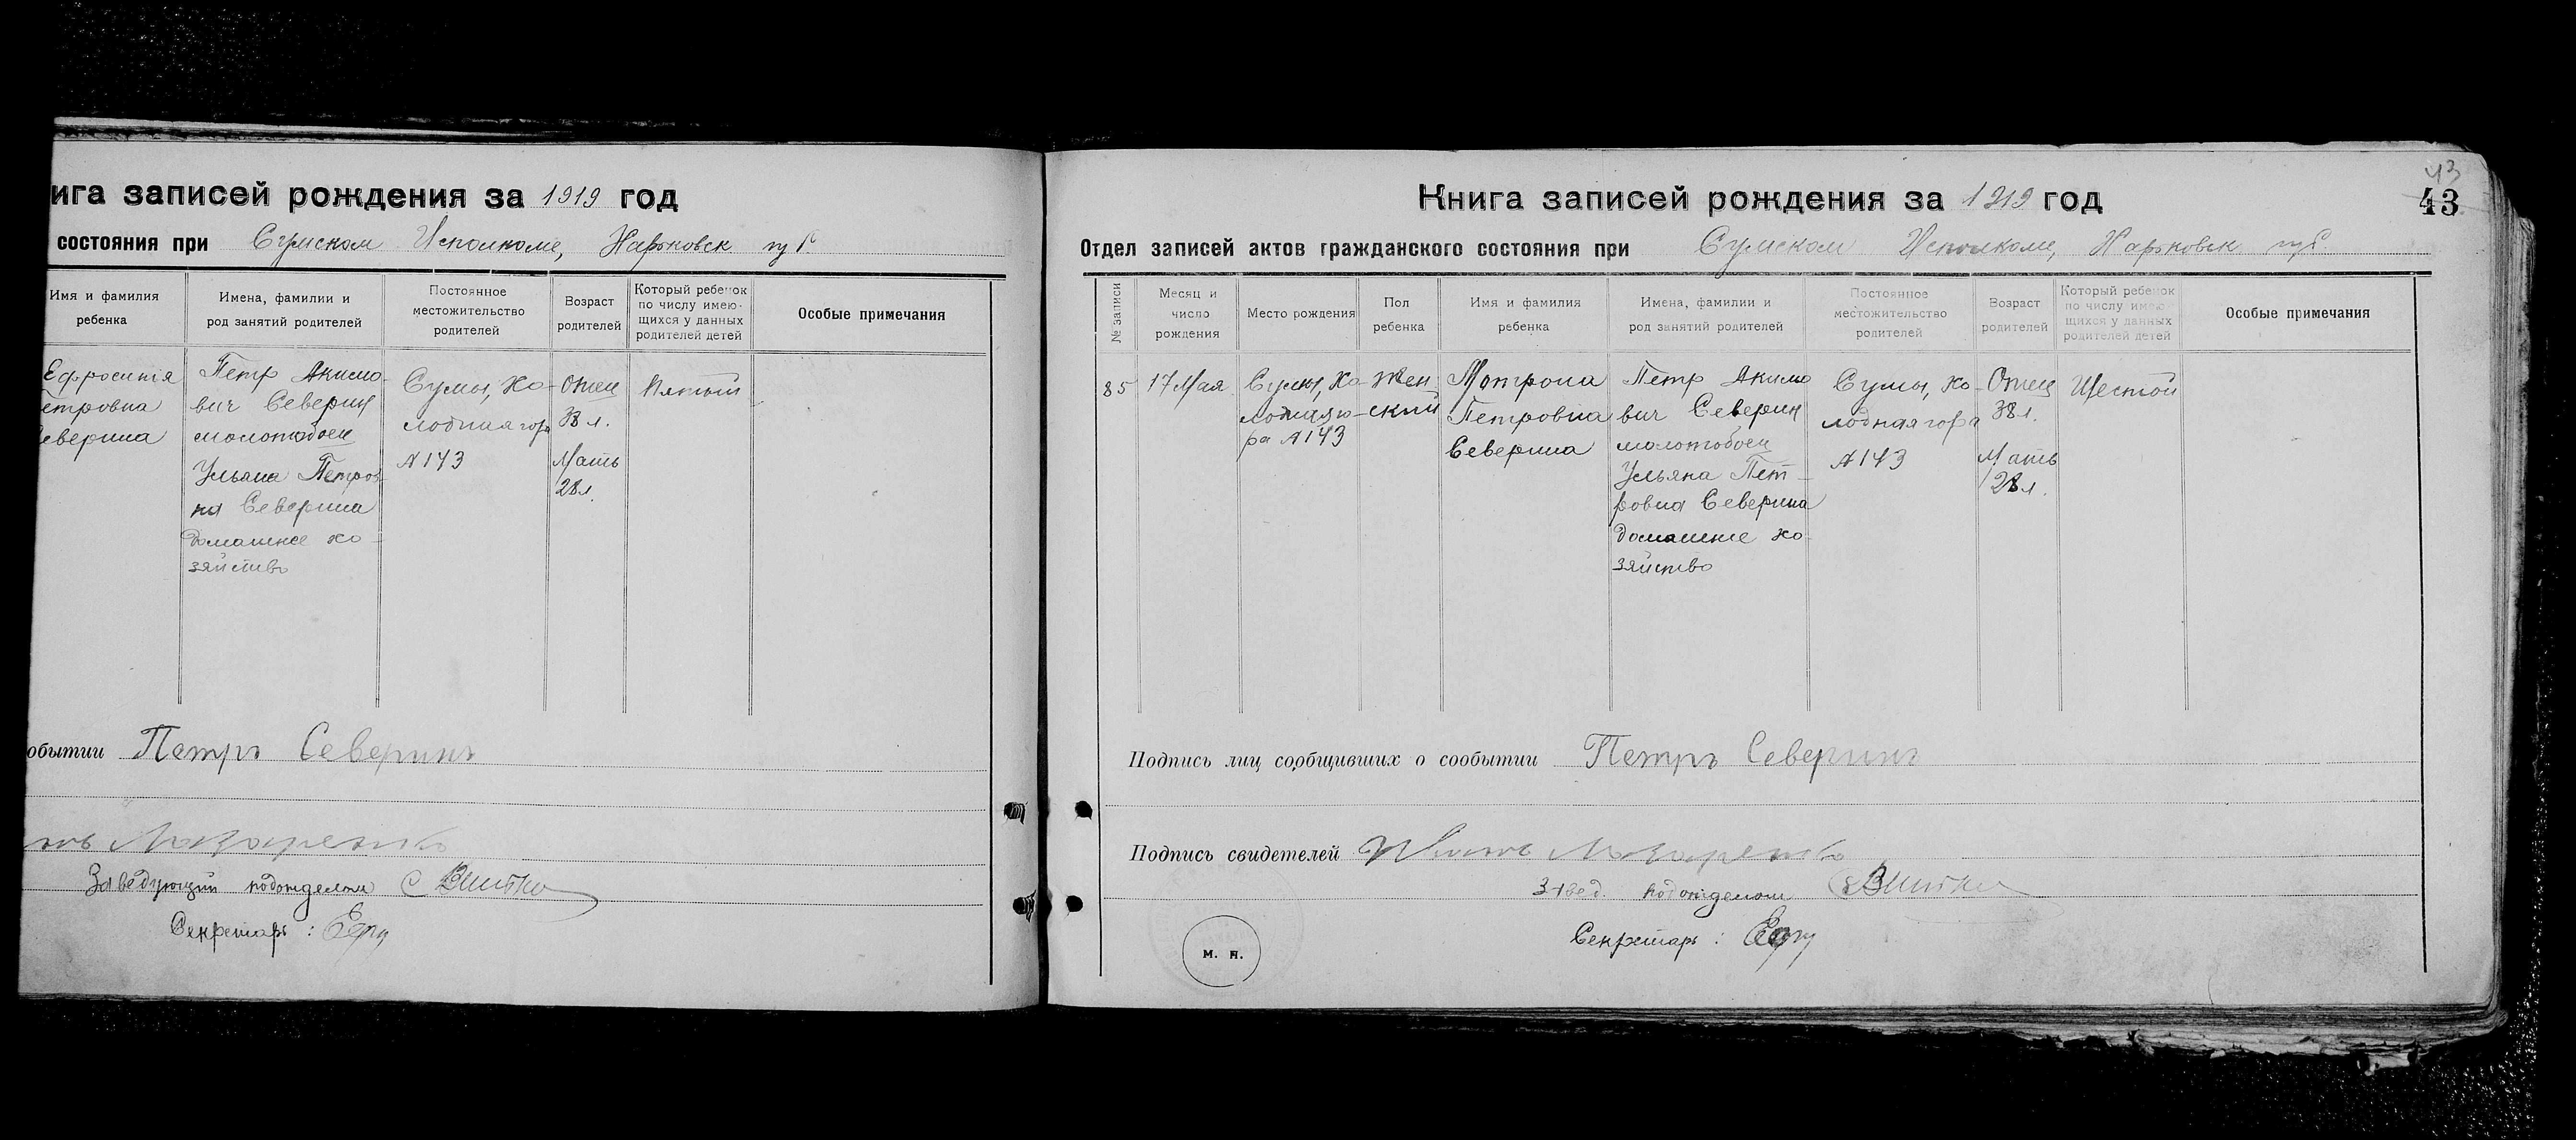 ига записей рождения за 1919 год
состояния при Сумском Исполкоме, Харьковск губ
Имя и фамилия
ребенка
Имена, фамилии и
род занятий родителей
Постоянное
местожительство
родителей
Возраст
родителей
Который ребенок
по числу имею-
щихся у данных
родителей детей
Особые примечания
Ефросиния
етровна
еверина
Петр Акимо-
вич Северин
молотобоец
Ульяна Петров-
на Северина
домашнее хо-
зяйство
Сумы, Хо-
лодная гора
N 143
Отец
38 л.
Мать
28 л.
Пятый
обытии Петръ Северинъ
Заведующий подотделом
Секретарь:
43
43
Книга записей рождения за 1919 год
Отдел записей актов гражданского состояния при Сумском Исполкоме, Харьковск губ.
№ записи
Месяц и
число
рождения
Место рождения
Пол
ребенка
Имя и фамилия
ребенка
Имена, фамилии и
род занятий родителей
Постоянное
местожительство
родителей
Возраст
родителей
Который ребенок
по числу имею-
щихся у данных
родителей детей
Особые примечания
85
17 Мая
Сумы, Хо-
лодная го-
ра N 143
Жен
ский
Мотрона
Петровна
Северина
Петр Акимо
вич Северин
молотобоец
Ульяна Пет-
ровна Северина
домашнее хо-
зяйство
Сумы, Хо-
лодная гора
N 143
Отец
38 л.
Мать
28 л.
Шестой
Подпись лиц сообщивших о сообытии Петръ Северинъ
Подпись свидетелей
Завед. подотделом
Секретарь:
м. п.